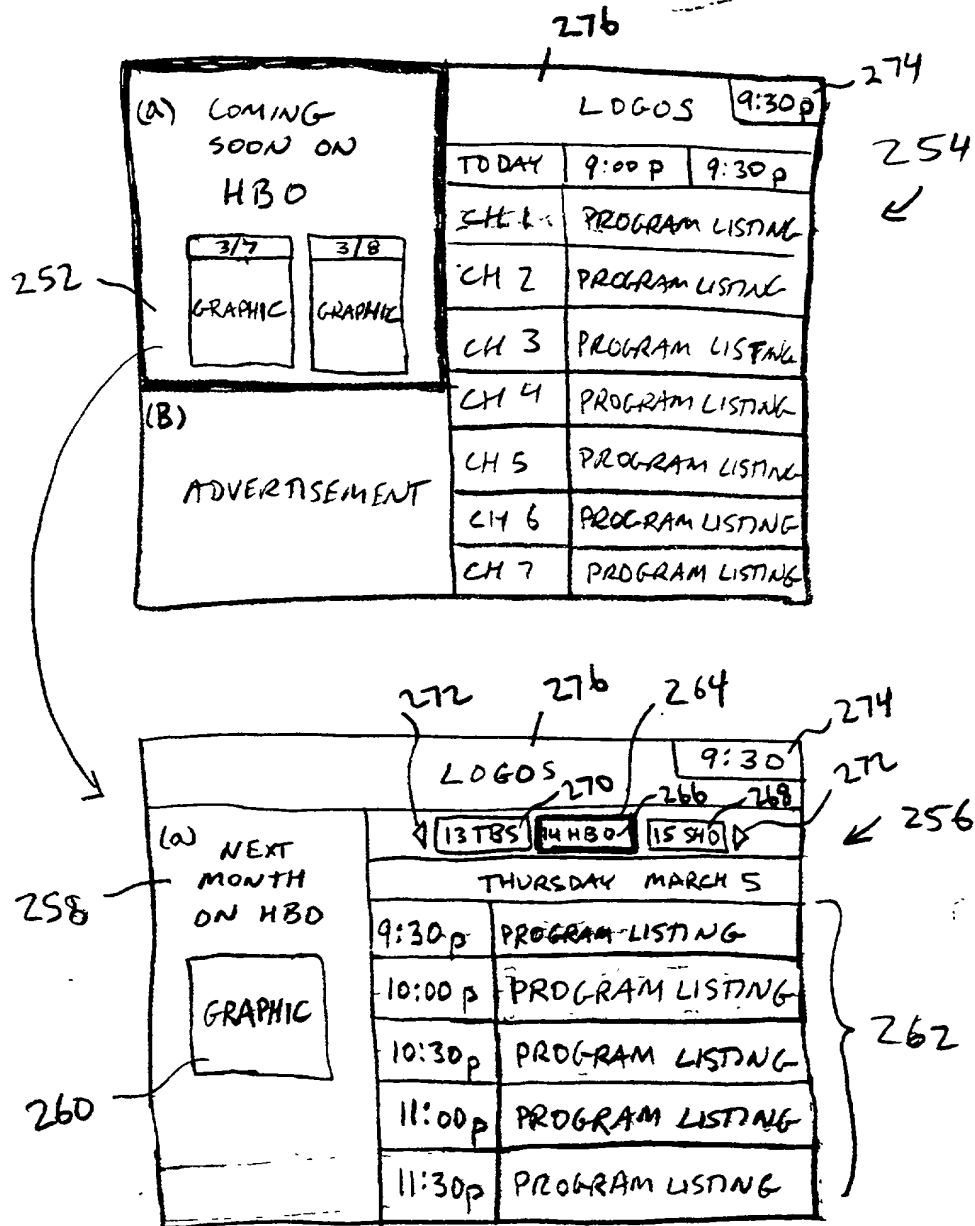 276
274
(a) COMING
SOON ON
HBO
LOGOS
9:30p
254
TODAY 9:00 p 9:30 p
3/7 3/8
GRAPHIC GRAPHIC
252
CH 1 PROGRAM LISTING
CH 2 PROGRAM LISTING
CH 3 PROGRAM LISTING
CH 4 PROGRAM LISTING
CH 5 PROGRAM LISTING
CH 6 PROGRAM LISTING
CH 7 PROGRAM LISTING
(B)
ADVERTISEMENT
272 276 264 274
LOGOS 9:30
270 266 268 272
13 TBS 14 HBO 15 SHO
256
(a) NEXT
MONTH
ON HBO
258
GRAPHIC
260
THURSDAY MARCH 5
9:30p PROGRAM LISTING
10:00 p PROGRAM LISTING
10:30p PROGRAM LISTING
11:00p PROGRAM LISTING
11:30p PROGRAM LISTING
262